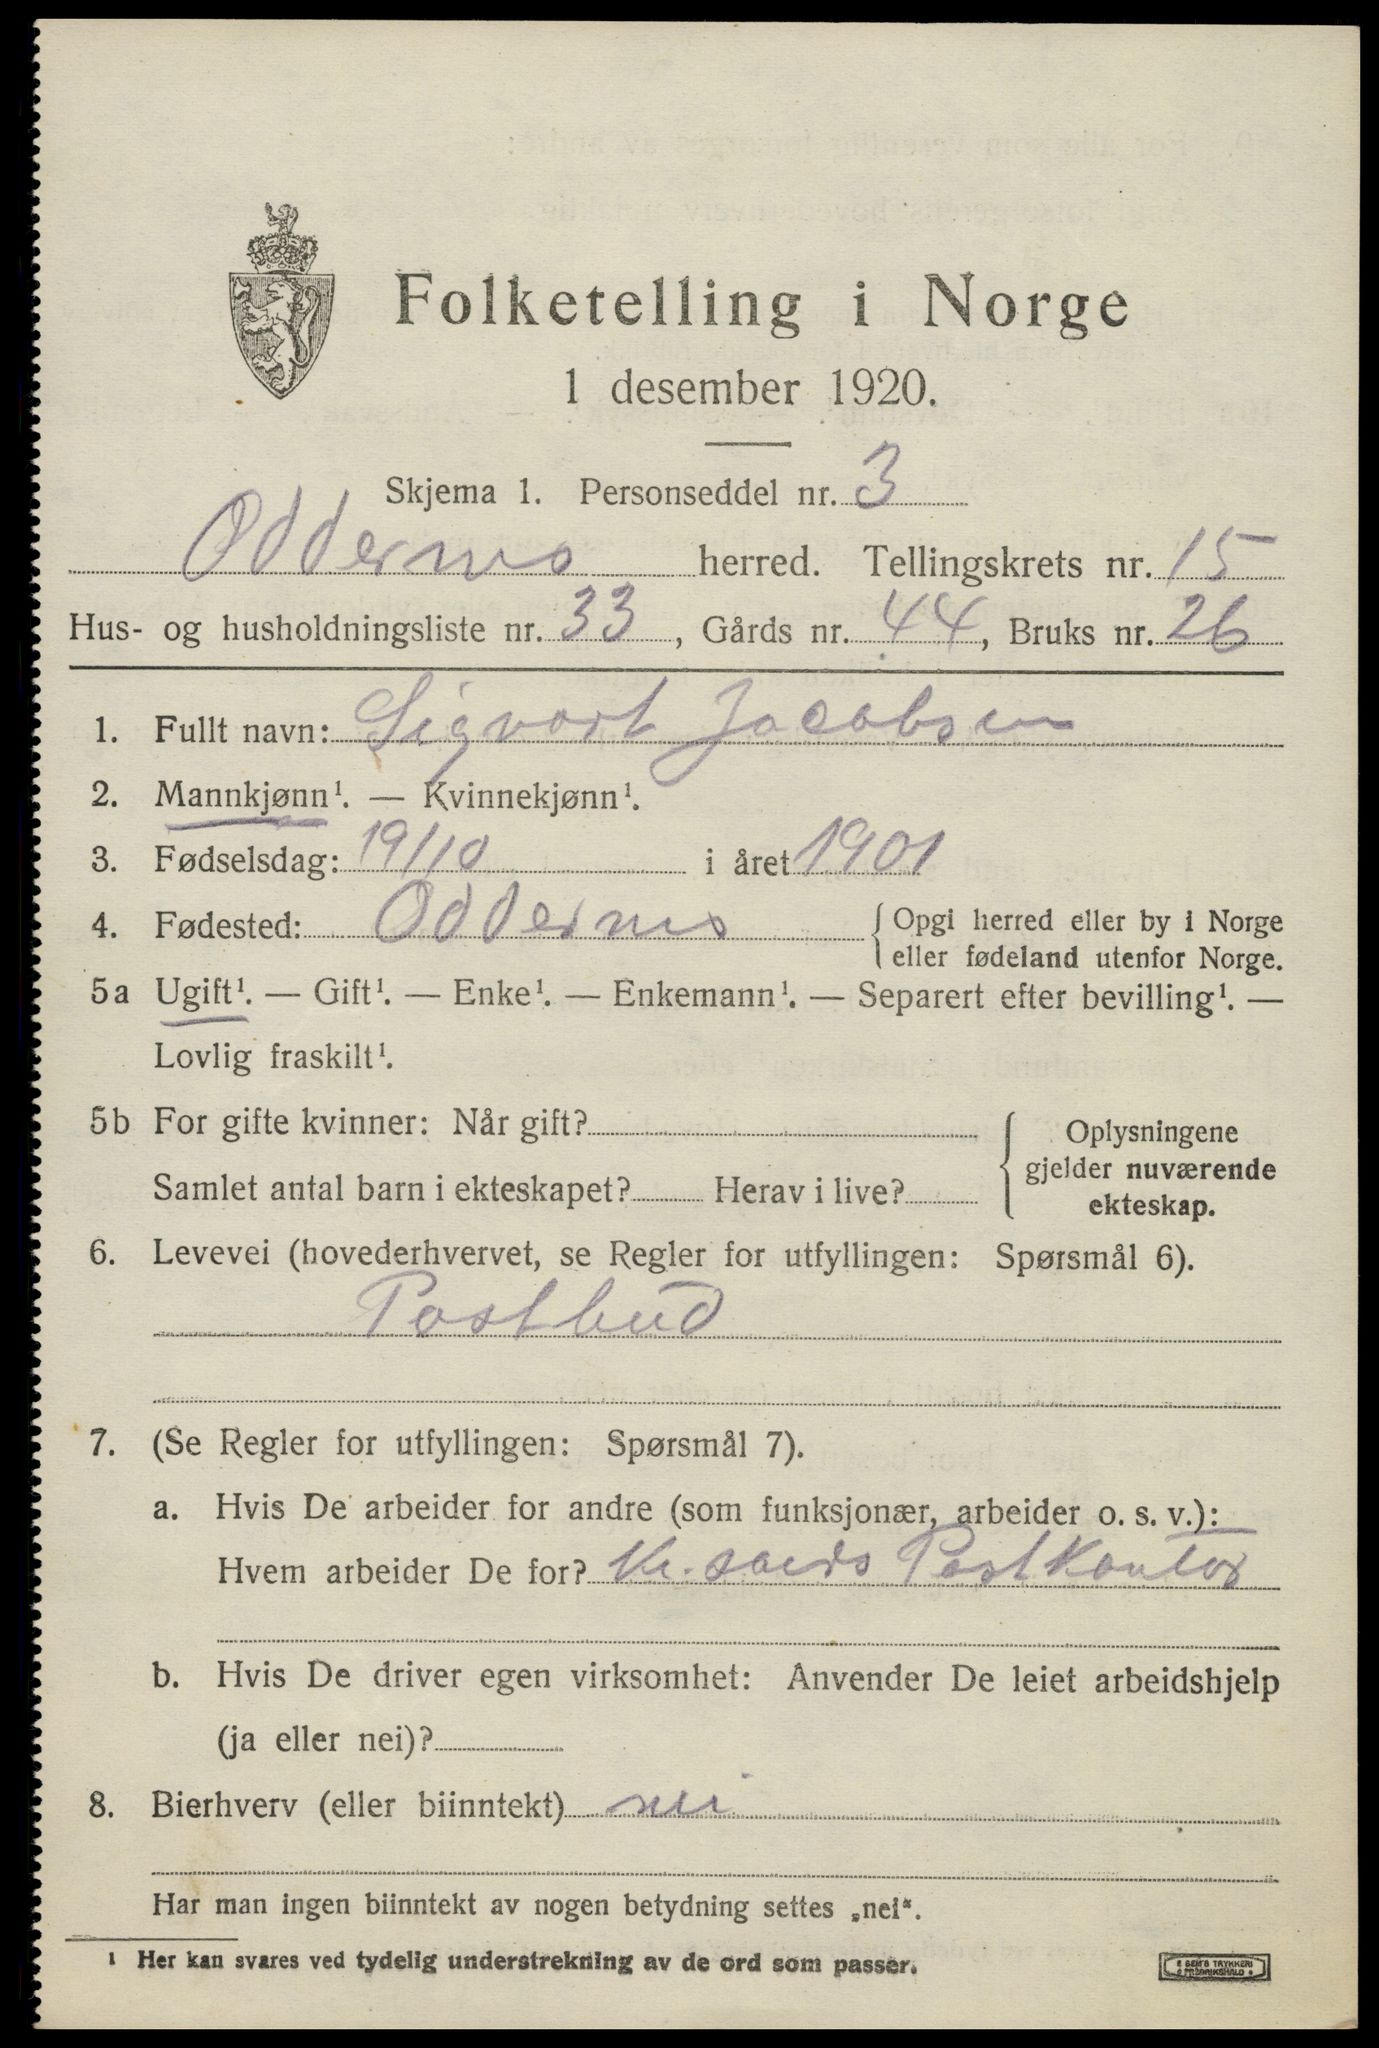 Folketelling i Norge
1 desember 1920.
Skjema 1. Personseddel nr. 3
Oddernes herred. Tellingskrets nr. 15
Hus- og husholdningsliste nr. 33, Gårds nr. 44, Bruks nr. 26
1. Fullt navn: Sigvart Jacobsen
2. Mannkjønn¹. — Kvinnekjønn¹.
3. Fødselsdag: 19/10 i året 1901
4. Fødested: Oddernes {Opgi herred eller by i Norge
eller fødeland utenfor Norge.
5a Ugift¹. — Gift¹. — Enke¹. — Enkemann¹. — Separert efter bevilling¹. —
Lovlig fraskilt¹.
5b For gifte kvinner: Når gift? Oplysningene
gjelder nuværende
Samlet antal barn i ekteskapet? Herav i live? ekteskap.
6. Levevei (hovederhvervet, se Regler for utfyllingen: Spørsmål 6).
Postbud
7. (Se Regler for utfyllingen: Spørsmål 7).
a. Hvis De arbeider for andre (som funksjonær, arbeider o. s. v.):
Hvem arbeider De for? Kr.sands Postkontor
b. Hvis De driver egen virksomhet: Anvender De leiet arbeidshjelp
(ja eller nei)?
8. Bierhverv (eller biinntekt) nei
Har man ingen biinntekt av nogen betydning settes „nei".
¹ Her kan svares ved tydelig understrekning av de ord som passer.
SEM'S TRYKKERI
FREDRIKSHALD